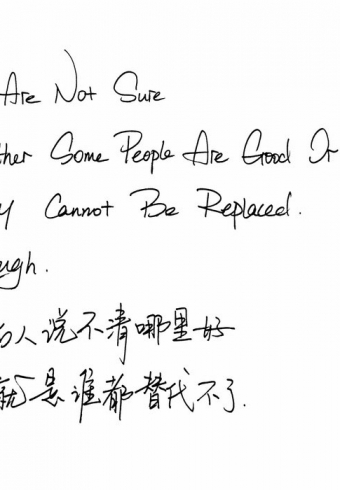 Are Not Sure
ther Some People Are Good Or
y Cannot Be Replaced.
ugh.
人说不清哪里好
就是谁都替代不了.